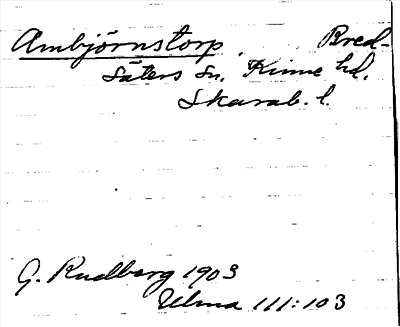 Ambjörnstorp Bred-
säters sn. Kinne hd.
Skarab. l.
G. Rudberg 1903
Ulma 111:103